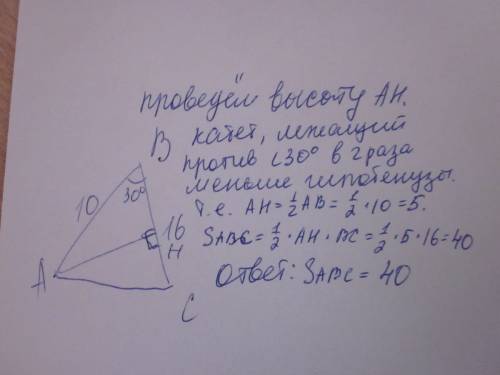 проведём высоту AH.
B катет, лежащий
против ∠30° в 2 раза
меньше гипотенузы.
т.е. AH = 1/2 AB = 1/2 · 10 = 5.
SABC = 1/2 · AH · BC = 1/2 · 5 · 16 = 40
Ответ: SABC = 40
10
30°
16
H
A
C